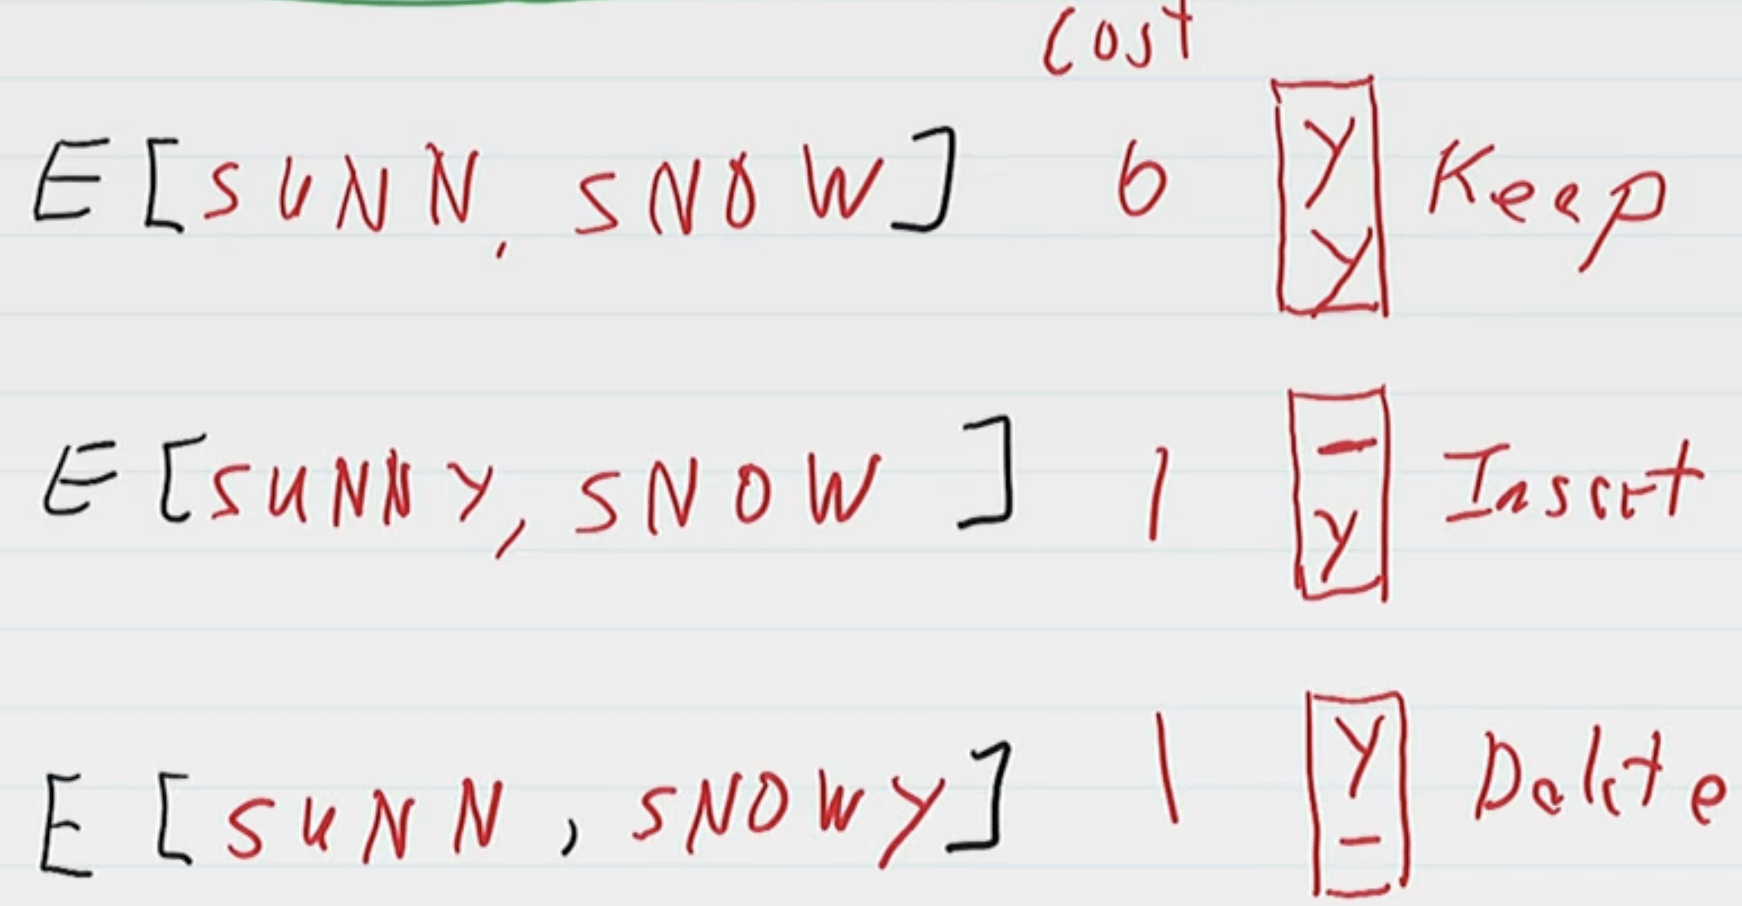 Cost
E[SUNN, SNOW] 0 Y Keep
Y
E[SUNNY, SNOW] 1 - Insert
Y
E[SUNN, SNOWY] 1 Y Delete
-